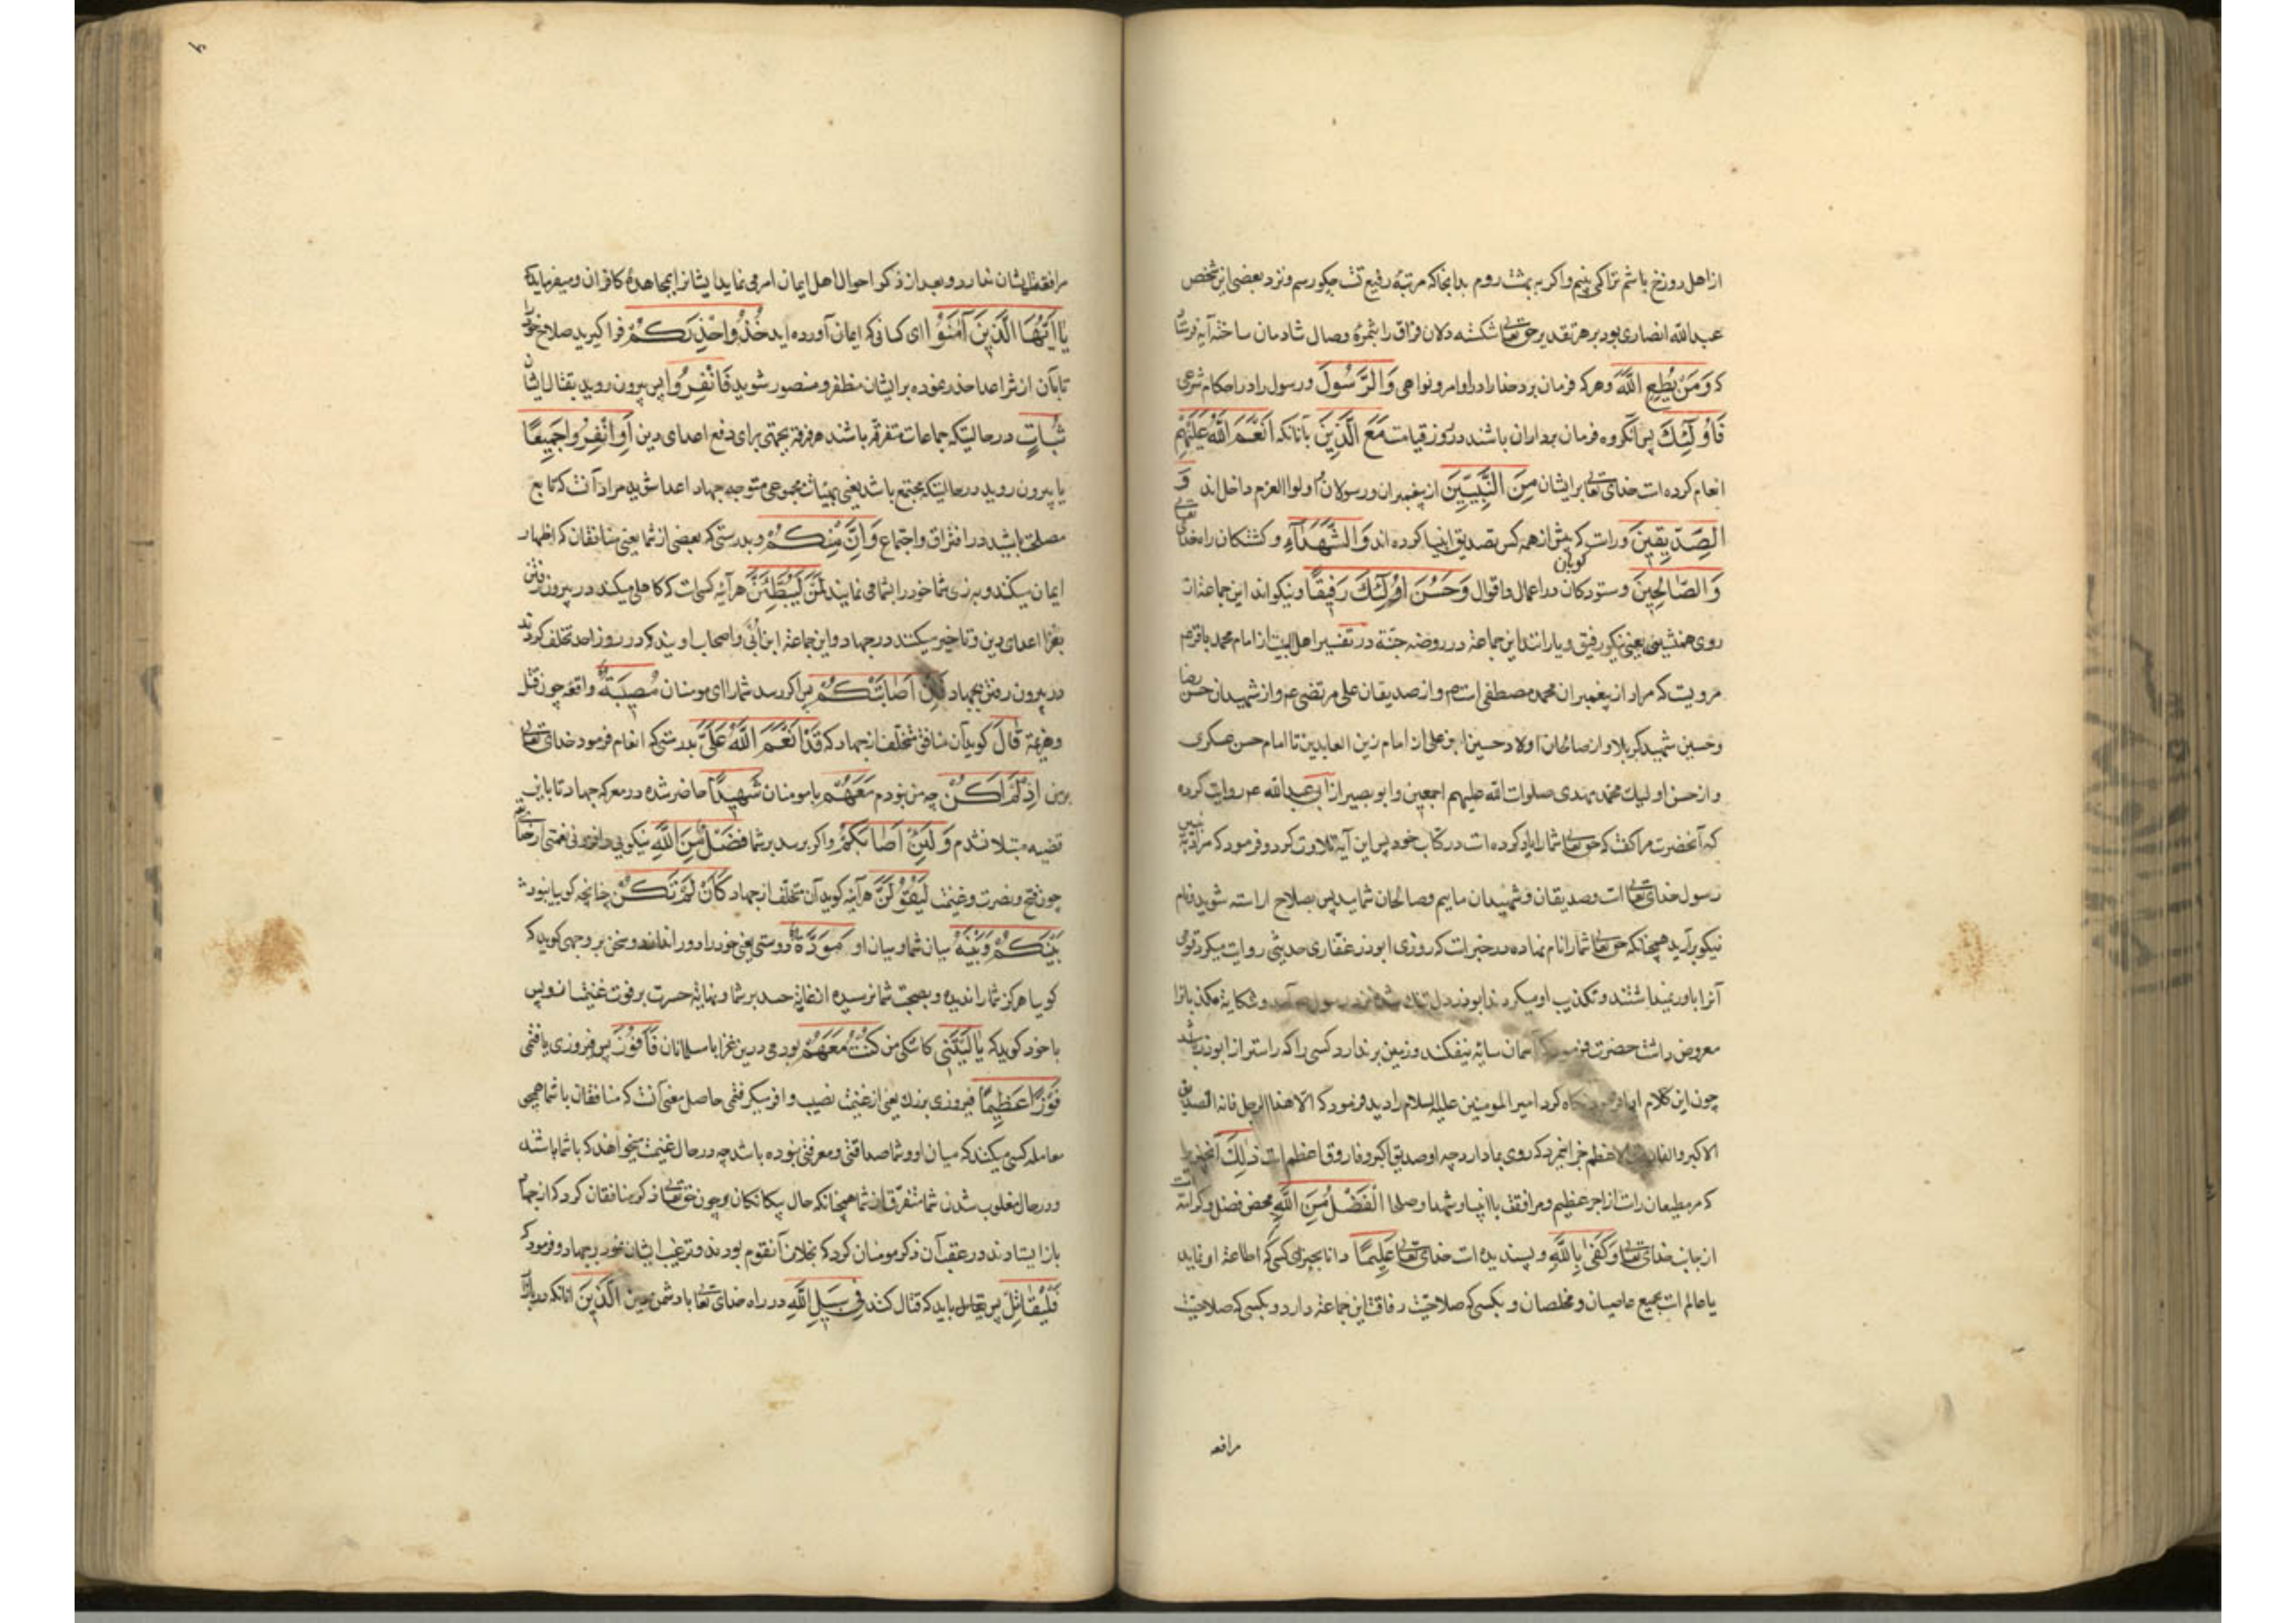 از اهل دوزخ باشم ترا کی بینم و اکر به بهشت روم بدانجا که مرتبهٔ رفیع تست چکو رسم و نزد بعضی این شخص
عبدالله انصاری بود بر هر تقدیر حق تعالی شکسته دلان فراق را بثمرهٔ وصال شادمان ساخته آیه فرستاد
که وَمَنْ یُطِعِ اللهَ وهر که فرمان برد خدا را در اوامر و نواهی وَالرَّسُولَ و رسول را در احکام شرعی
فَأُولَٰئِكَ پس آنکروه فرمان برداران باشند در روز قیامت مَعَ الَّذِینَ با آنانکه اَنْعَمَ اللهُ عَلَیْهِمْ
انعام کرده است خدای تعالی بر ایشان مِنَ النَّبِیّینَ از پیغمبران و رسولان و اولوا العزم داخل اند وَ
الصِّدّیقینَ و راست که پیش از همه کس تصدیق انبیا کرده اند وَالشُّهَدَآءِ و کشتکان راه خدای تعالی
کویان
وَالصّالِحِینَ و ستودکان در اعمال و اقوال وَحَسُنَ اُولَٰئِكَ رَفِیقًا و نیکو اند این جماعت از
روی همنشینی یعنی نیکو رفیق و یارانند این جماعة در روضه جنّة در تفسیر اهل البیت از امام محمد باقر عم
مرویست که مراد از پیغمبران محمد مصطفی است صم و از صدیقان علی مرتضی عم و از شهیدان حسن رضا
و حسین شهید کربلا و از صالحان اولاد حسین بن علی از امام زین العابدین تا امام حسن عسکری
و از حسن اولیک محمد مهدی صلوات الله علیهم اجمعین و ابو بصیر از ابی عبدالله عم روایت کرده
که آنحضرت مرا کفت که حق تعالی شما را یاد کرده است در کتاب خود پس این آیه تلاوت کرد و فرمود که مراد به نبیین
رسول خدای تعالی است و صدیقان و شهیدان ماییم و صالحان شمایید پس بصلاح اراسته شوید و نام
نیکو برآرید همچنانکه حق تعالی شما را نام نهاده در خبر است که روزی ابوذر غفاری حدیثی روایت میکرد قومی
آنرا باور نمیداشتند و تکذیب او میکردند ابوذر دل تنک شده نزد رسول آمد و شکایة مکذبانرا
معروض داشت حضرت فرمود که آسمان سایه نیفکند و زمین برندارد کسی را که راستر از ابوذر باشد
چون این کلام نکاه کرد امیر المومنین علیه السلام را دید و فرمود که الا هذا الرجل فانه الصدیق
الاکبر و الفاروق الاعظم جز این مرد که روی بما دارد چه او صدیق اکبر و فاروق اعظم است ذٰلِكَ آنچیز
که مر مطیعان راست از اجر عظیم و مرافقت با انبیا و شهدا و صلحا اَلْفَضْلُ مِنَ اللهِ محض فضل و کرامت است
از جانب خدای تعالی وَکَفٰی بِاللهِ و پسندیده است خدای تعالی عَلِیمًا دانا بجزای کسی که اطاعة او نماید
یا عالم است بجمیع عاصیان و مخلصان و بکسی که صلاحیت رفاقت این جماعة دارد و بکسی که صلاحیت
مرافقه
مرافقة ایشان ندارد و بعد از ذکر احوال اهل ایمان امر می نماید ایشانرا بمجاهدهٔ کافران و میفرماید که
یٰا اَیُّهَا الَّذِینَ آمَنُوْا ای کسانی که ایمان آورده اید خُذُوْا حِذْرَكُمْ فرا کیرید سلاح خود را
تا بآن از شر اعدا حذر نموده بر ایشان مظفر و منصور شوید فَانْفِرُوا پس بیرون روید بقتال ایشان
ثُبَاتٍ در حالیتکه جماعات متفرقه باشند هر فرقه بجهتی برای دفع اعدای دین اَوِ انْفِرُوا جَمِیعًا
یا بیرون روید در حالیتکه مجتمع باشید یعنی بهیئات مجموعی متوجه جهاد اعدا شوید مراد آنست که تابع
مصلحة باشید در افتراق و اجتماع وَاِنَّ مِنْکُمْ و بدرستی که بعضی از شما یعنی منافقان که اظهار
ایمان میکنند و به زی شما خود را بشما می نمایند لَمَنْ لَیُبَطِّئَنَّ هر آینه کسیست که کاهلی میکند در بیرون رفتن
بغزا اعدای دین و تاخیر میکنند در جهاد و این جماعة ابن اُبَیّ و اصحاب اویند که در روز احد تخلف کردند
در بیرون رفتن بجهاد فَاِنْ اَصٰابَتْکُمْ پس اکر رسد شما را ای مومنان مُصِیبَةٌ واقعه چون قتل
و هزیمة قٰالَ کوید آن منافق متخلف از جهاد که قَدْ اَنْعَمَ اللهُ عَلَیَّ بدرستی که انعام فرمود خدای تعالی
بر من اِذْ لَمْ اَکُنْ چه من نبودم مَعَهُمْ با مومنان شَهِیدًا حاضر شده در معرکه جهاد تا باین
قضیه مبتلا نشدم وَلَئِنْ اَصٰابَکُمْ و اکر برسد بر شما فَضْلٌ مِنَ اللهِ نیکویی و افزونی نعمتی از خدای تعالی
چون فتح و نصرت و غنیمت لَیَقُوْلَنَّ هر آینه کوید آن متخلف از جهاد کَاَنْ لَمْ تَکُنْ چنانچه کوییا نبود
بَیْنَکُمْ وَبَیْنَهُ میان شما و میان او مَوَدَّةٌ دوستی یعنی خود را دور اندازد و سخن بر وجهی کوید که
کویا هرکز شما را ندیده و بصحبت شما نرسیده از غایة حسد بر شما و نهایة حسرت بر فوت غنیمت از و پس
با خود کوید که یٰا لَیْتَنِی کاشکی من کُنْتُ مَعَهُمْ بودمی درین غزا با مسلمانان فَاَفُوْزَ پس فیروزی یافتمی
فَوْزًا عَظِیمًا فیروزی بزرك یعنی از غنیمت نصیب وافر میکرفتمی حاصل معنی آنست که منافقان با شما همچی
معامله کسی میکنند که میان او و شما صداقتی و معرفتی نبوده باشد چه در حال غنیمت میخواهند که با شما باشند
و در حال مغلوب شدن شما متفرق از شما همچنانکه حال بیکانکان و چون حق تعالی ذکر منافقان کرد که از جهاد
باز ایستادند در عقب آن ذکر مومنان کرد که بخلاف آنقوم بودند و ترغیب ایشان نمود بجهاد و فرمود که
فَلْیُقٰاتِلْ پس باید که قتال کنند فِی سَبِیلِ اللهِ در راه خدای تعالی با دشمن دین الَّذِینَ آنانکه